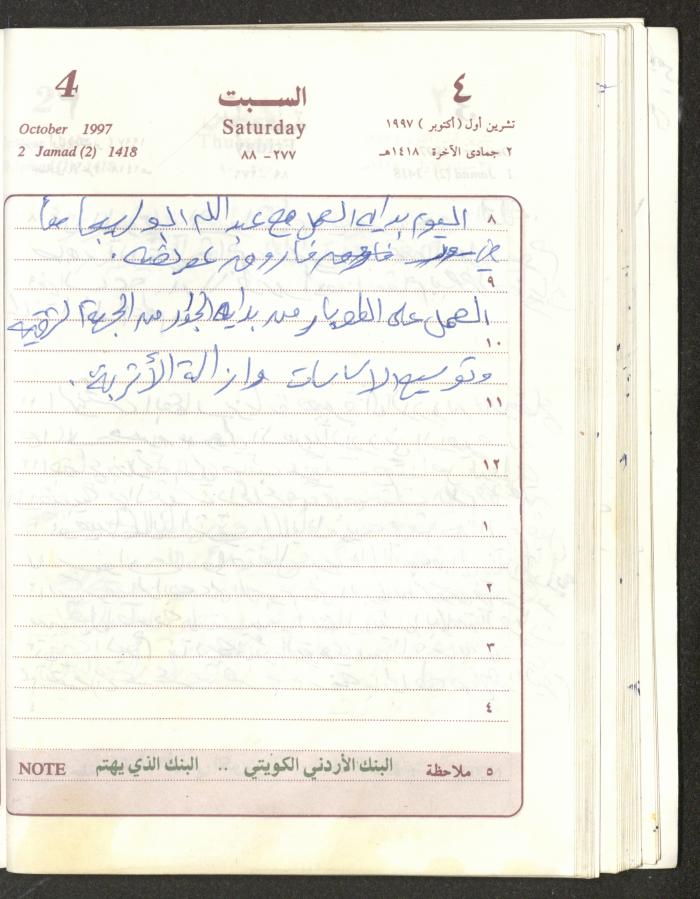 4 السبت ٤
October 1997 Saturday تشرين أول (أكتوبر) ١٩٩٧
2 Jamad (2) 1418 ٢٧٧-٨٨ ٢ جمادى الآخرة ١٤١٨هـ
٨ اليوم بداية العمل مع عبد الله
فاروق عن
٩
العمل على الطوبار من بداية الجدار من الجهة
١٠
وتوسيع الاساسات وازالة الأتربة .
١١
١٢
١
٢
٣
٤
٥ ملاحظة البنك الأردني الكويتي .. البنك الذي يهتم NOTE